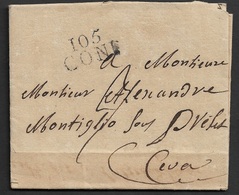 105
CONI
a Monsieur
Monsieur Alexandre
Montiglio Sous Préfet
Ceva